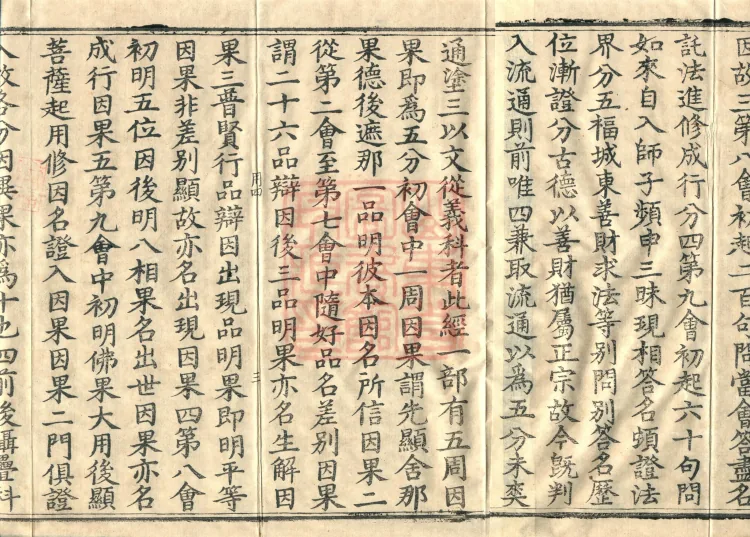 故三第八會初起二百句問當會答盡名
託法進修成行分四第九會初起六十句問
如來自入師子頻申三昧現相答名頓證法
界分五福城東善財求法等別問別答名歷
位漸證分古德以善財猶屬正宗故今旣判
入流通則前唯四兼取流通以爲五分未爽
通塗三以文從義科者此經一部有五周因
果即爲五分初會中一周因果謂先顯舍那
果德後遮那一品明彼本因名所信因果二
從第二會至第七會中隨好品名差別因果
謂二十六品辯因後三品明果亦名生解因
三
果三普賢行品辯因出現品明果即明平等
因果非差別顯故亦名出現因果四第八會
初明五位因後明八相果名出世因果亦名
成行因果五第九會中初明佛果大用後顯
菩薩起用修因名證入因果因果二門俱證
入故各分因異果亦爲十也四前後攝疊科